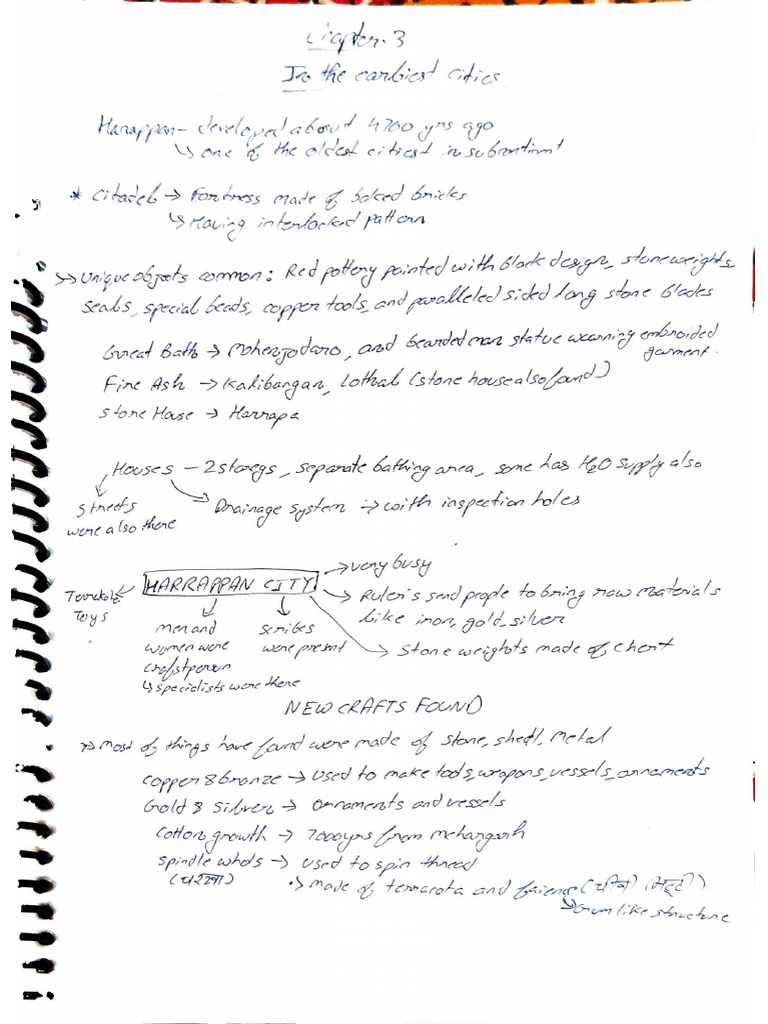 Chapter-3
In the earliest cities
Harrappan - developed about 4700 yrs ago
↳ one of the oldest citiest in subcontinent
* Citadel → Fortress made of baked bricks
↳ Having interlocked pattern
→ Unique objects common: Red pottery painted with black design, stone weights,
Seals, special beads, copper tools, and paralleled sided long stone blades
Great Bath → Mohenjodaro, and bearded man statue wearning embroided
garment.
Fire Ash → Kalibangan, Lothal (stone house also found)
Stone House → Harrapa
Houses - 2 storeys, separate bathing area, some has H2O supply also
Streets
were also there
Drainage system → with inspection holes
→ very busy
HARRAPPAN CITY
Terrakota
Toys
→ Ruler's send people to bring raw materials
like iron, gold, silver
men and
women were
craftperson
↳ specialists were there
scribes
were present
→ Stone weights made of chert
NEW CRAFTS FOUND
→ Most of things have found were made of stone, shell, metal
Copper & bronze → used to make tools, weapons, vessels, ornaments
Gold & Silver → ornaments and vessels
Cotton growth → 7000 yrs from mehargarh
Spindle whols → used to spin thread
(चरखा)
→ made of terracota and faience
→ Gum like structure